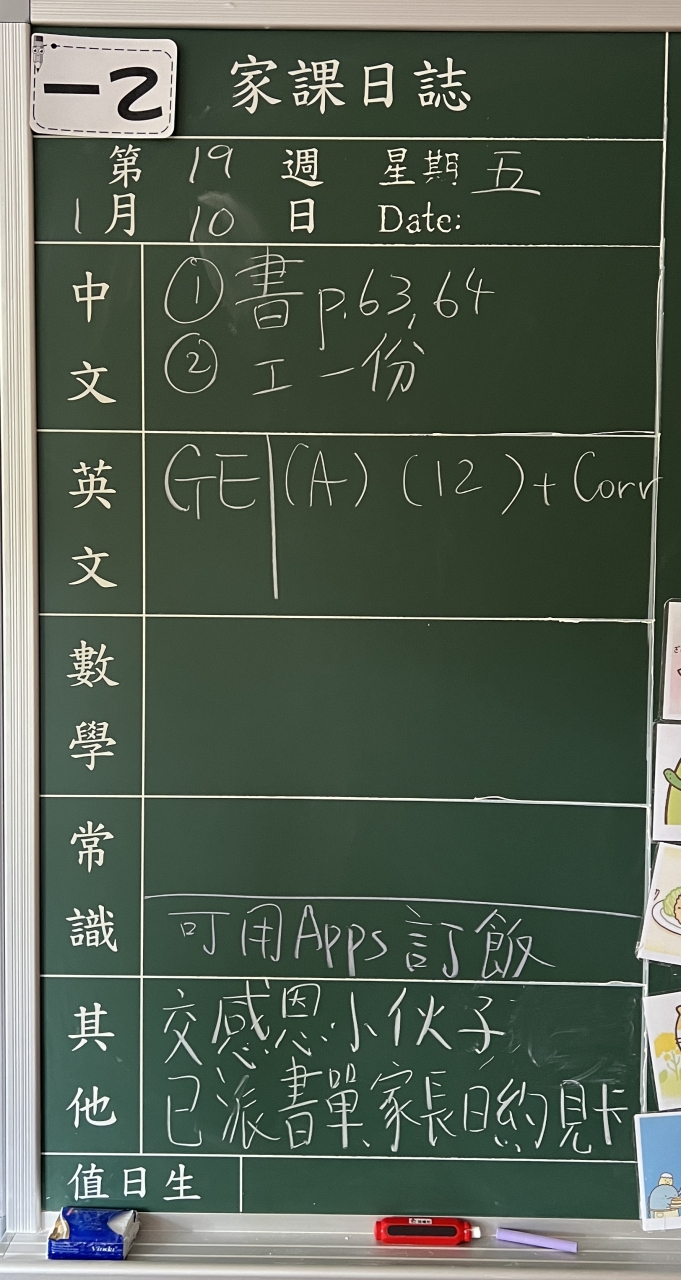 一乙
家課日誌
第 19 週 星期 五
1月 10 日 Date:
中文
① 書 p.63, 64
② 工一份
英文
GE (A) (12) + Corr
數學
常識
可用Apps訂飯
其他
交感恩小伙子
已派書單、家長日約見卡
值日生
Vinda